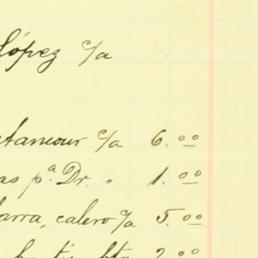 López c/a
tancour c/a 6.00
as p.a Dr. " 1.00
arra, calero c/a 5.00
2.00